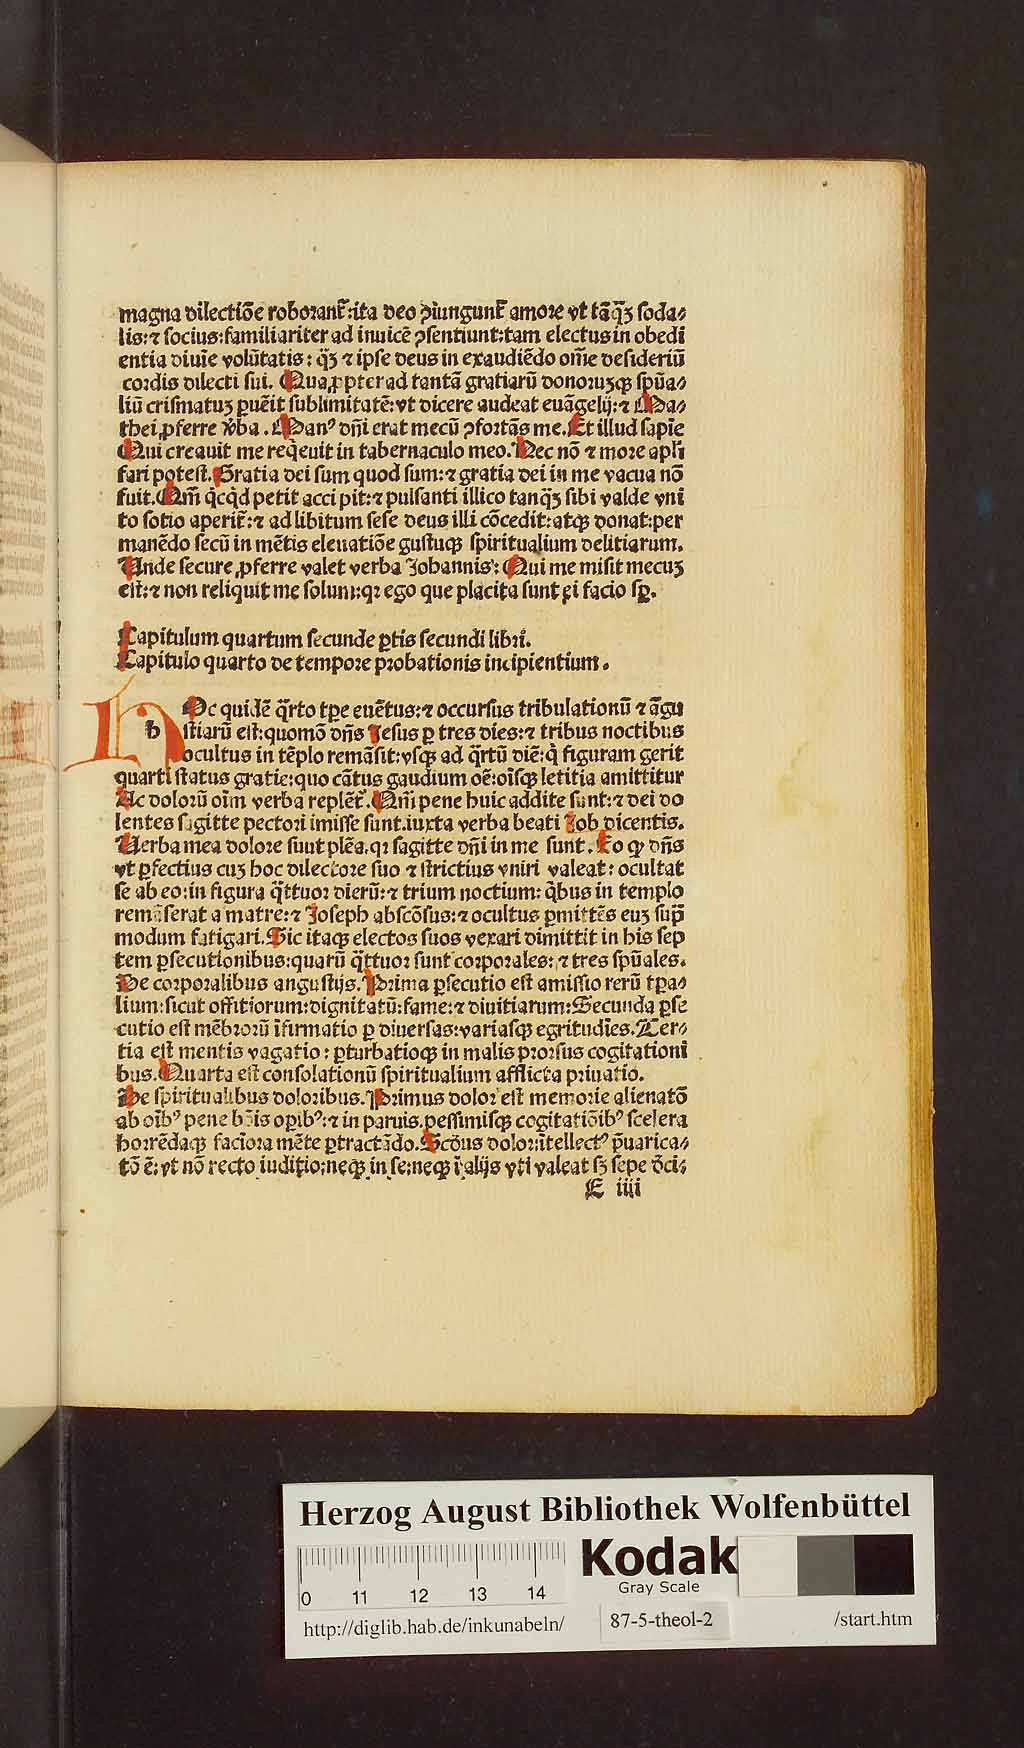 magna dilectiõe roborant᷑:ita deo ꝯiungunt᷑ amore vt tãq̃ꝫ soda⸗
lis:⁊ socius:familiariter ad inuicẽ ꝯsentiunt:tam electus in obedi
entia diuĩe volũtatis: q̃ꝫ ⁊ ipse deus in exaudiẽdo om̃e desideriũ
cordis dilecti sui. Qua,ꝓpter ad tantã gratiarũ donoruꝫqꝫ spũa⸗
liũ crismatuꝫ ꝑuẽit sublimitatẽ:vt dicere audeat euãgelij:⁊ Ma⸗
thei ꝓferre v̾ba. Manꝰ dñi erat mecũ ꝯfortãs me. Et illud sapie
Qui creauit me req̃euit in tabernaculo meo. Nec nõ ⁊ more apl̃i
fari potest. Gratia dei sum quod sum:⁊ gratia dei in me vacua nõ
fuit. Qm̃ q̃cq̃d petit acci pit:⁊ pulsanti illico tanq̃ꝫ sibi valde vni
to sotio aperit᷑:⁊ ad libitum sese deus illi cõcedit:atqꝫ donat:per
manẽdo secũ in mẽtis eleuatiõe gustuqꝫ spiritualium delitiarum.
Unde secure ꝓferre valet verba Johannis: Qui me misit mecuꝫ
est:⁊ non reliquit me solum:qꝛ ego que placita sunt ei facio sꝑ.
Capitulum quartum secunde ꝑtis secundi libri.
Capitulo quarto de tempore probationis incipientium.
h
HOc quidẽ q̃rto tꝑe euẽtus:⁊ occursus tribulationũ ⁊ ãgu
stiarũ est:quomõ dñs Jesus ꝑ tres dies:⁊ tribus noctibus
ocultus in tẽplo remãsit:vsqꝫ ad q̃rtũ diẽ:q̃ figuram gerit
quarti status gratie:quo cãtus gaudium oẽ:oĩsqꝫ letitia amittitur
Ac dolorũ oĩm verba replẽt᷑. Qm̃ pene huic addite sunt:⁊ dei do
lentes sagitte pectori imisse sunt.iuxta verba beati Job dicentis.
Uerba mea dolore suut plẽa.qꝛ sagitte dñi in me sunt. Eo ꝙ dñs
vt ꝑfectius cuꝫ hoc dilectore suo ⁊ strictius vniri valeat: ocultat
se ab eo:in figura q̃ttuor dierũ:⁊ trium noctium: q̃bus in templo
remãserat a matre:⁊ Joseph abscõsus:⁊ ocultus ꝑmittẽs euꝫ sup̃
modum fatigari. Sic itaqꝫ electos suos vexari dimittit in his sep
tem ꝑsecutionibus:quarũ q̃ttuor sunt corporales:⁊ tres spũales.
De corporalibus angustijs. Prima ꝑsecutio est amissio rerũ tꝑa⸗
lium:sicut offitiorum:dignitatũ:fame:⁊ diuitiarum:Secunda ꝑse
cutio est mẽbrorũ ĩfirmatio ꝑ diuersas:variasqꝫ egritudĩes. Ter⸗
tia est mentis vagatio: ꝑturbatioqꝫ in malis prorsus cogitationi
bus. Quarta est consolationũ spiritualium afflicta priuatio.
De spiritualibus doloribus. Primus dolor est memorie alienatõ
ab oĩbꝰ pene bõis oꝑibꝰ:⁊ in paruis.pessimisqꝫ cogitatiõibꝰ scelera
horrẽdaqꝫ faciora mẽte ꝑtractãdo. Scðus dolor:ĩtellectꝰ p̃uarica⸗
tõ ẽ: vt nõ recto iuditio:neqꝫ in se:neqꝫ ĩ alijs vti valeat sꝫ sepe d̾ci⸗
E iiii
Herzog August Bibliothek Wolfenbüttel
Kodak
Gray Scale
0 11 12 13 14
http://diglib.hab.de/inkunabeln/ 87-5-theol-2 /start.htm